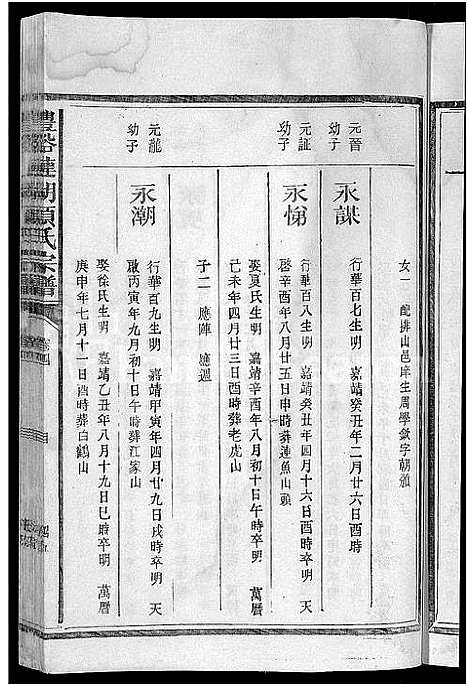 女一 配排山邑庠生周學欽字朝
元晉
幼子
永謀
行華百七生明 嘉靖癸丑年二月廿六日酉時
元証
幼子
永悌
行華百八生明 嘉靖癸丑年四月十六日酉時卒明 天
啓辛酉年八月廿五日申時葬連魚山頭
娶夏氏生明 嘉靖辛酉年八月初十日午時卒明 萬曆
己未年四月廿三日酉時葬老虎山
子二 應陣 應遇
元龍
幼子
永潮
行華百九生明 嘉靖甲寅年四月廿九日戌時卒明 天
啟丙寅年九月初十日午時葬江家山
娶徐氏生明 嘉靖乙丑年八月十九日巳時卒明 萬曆
庚申年七月十一日酉時葬白鶴山
豐谿蓮湖項氏宗譜